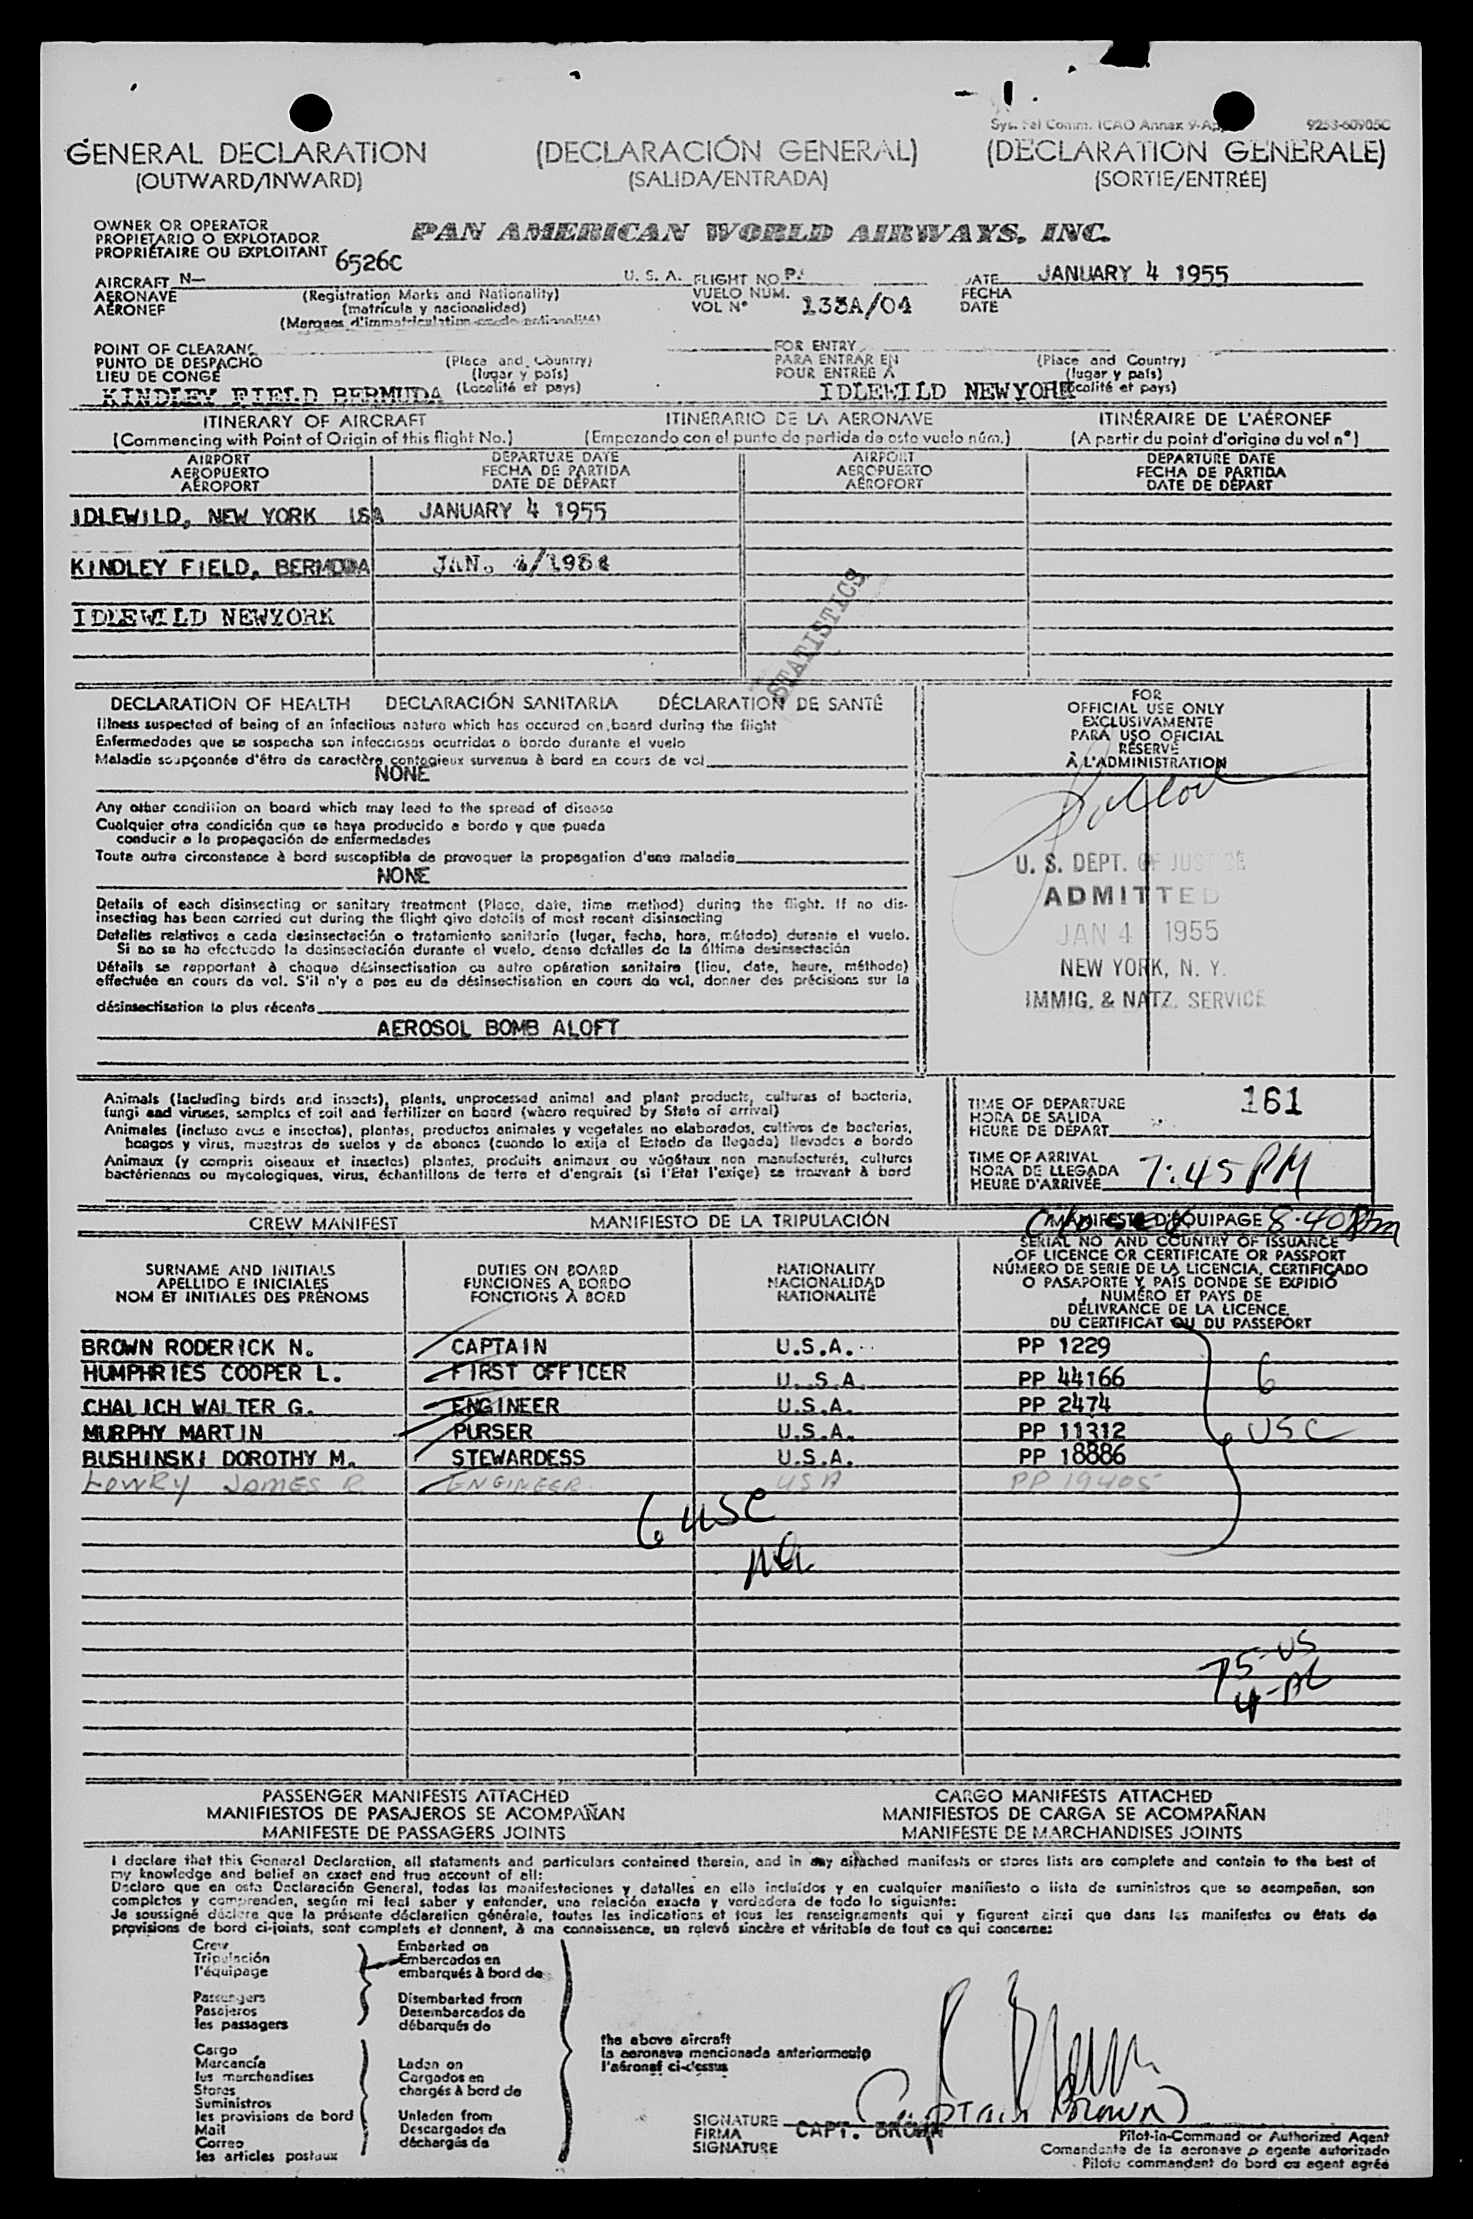 9253-60905C
GENERAL DECLARATION (DECLARACIÓN GENERAL) (DÉCLARATION GÉNÉRALE)
(OUTWARD/INWARD) (SALIDA/ENTRADA) (SORTIE/ENTRÉE)
OWNER OR OPERATOR
PROPIETARIO O EXPLOTADOR
PROPRIÉTAIRE OU EXPLOITANT
PAN AMERICAN WORLD AIRWAYS, INC.
AIRCRAFT N- 6526C U. S. A. FLIGHT NO. DATE JANUARY 4 1955
AERONAVE (Registration Marks and Nationality) VUELO NUM. FECHA
AÉRONEF (matrícula y nacionalidad) VOL N° 133A/04 DATE
POINT OF CLEARANCE FOR ENTRY
PUNTO DE DESPACHO (Place and Country) PARA ENTRAR EN (Place and Country)
LIEU DE CONGÉ (lugar y país) POUR ENTRÉE À (lugar y país)
KINDLEY FIELD BERMUDA (Localité et pays) IDLEWILD NEWYORK (Localité et pays)
ITINERARY OF AIRCRAFT ITINERARIO DE LA AERONAVE ITINÉRAIRE DE L'AÉRONEF
(Commencing with Point of Origin of this flight No.) (Empezando con el punto de partida de este vuelo núm.) (A partir du point d'origine du vol n°)
AIRPORT DEPARTURE DATE AIRPORT DEPARTURE DATE
AEROPUERTO FECHA DE PARTIDA AEROPUERTO FECHA DE PARTIDA
AÉROPORT DATE DE DÉPART AÉROPORT DATE DE DÉPART
IDLEWILD, NEW YORK USA JANUARY 4 1955
KINDLEY FIELD, BERMUDA JAN.
IDLEWILD NEWYORK
STATISTICS
DECLARATION OF HEALTH DECLARACIÓN SANITARIA DÉCLARATION DE SANTÉ
Illness suspected of being of an infectious nature which has occured on board during the flight
Enfermedades que se sospecha son infecciosas ocurridas a bordo durante el vuelo
Maladie soupçonnée d'être de caractère contagieux survenue à bord en cours de vol
NONE
Any other condition on board which may lead to the spread of disease
Cualquier otra condición que se haya producido a bordo y que pueda
conducir a la propagación de enfermedades
Toute autre circonstance à bord susceptible de provoquer la propagation d'une maladie
NONE
Details of each disinsecting or sanitary treatment (Place, date, time method) during the flight. If no dis-
insecting has been carried out during the flight give details of most recent disinsecting
Detalles relativos a cada desinsectación o tratamiento sanitario (lugar, fecha, hora, método) durante el vuelo.
Si no se ha efectuado la desinsectación durante el vuelo, dense detalles de la última desinsectación
Détails se rapportant à chaque désinsectisation ou autre opération sanitaire (lieu, date, heure, méthode)
effectuée en cours de vol. S'il n'y a pas eu de désinsectisation en cours de vol, donner des précisions sur la
désinsectisation la plus récente
AEROSOL BOMB ALOFT
FOR
OFFICIAL USE ONLY
EXCLUSIVAMENTE
PARA USO OFICIAL
RÉSERVÉ
À L'ADMINISTRATION
U. S. DEPT. OF JUSTICE
ADMITTED
JAN 4 1955
NEW YORK, N. Y.
IMMIG. & NATZ. SERVICE
Animals (including birds and insects), plants, unprocessed animal and plant products, cultures of bacteria,
fungi and viruses, samples of soil and fertilizer on board (where required by State of arrival)
Animales (incluso aves e insectos), plantas, productos animales y vegetales no elaborados, cultivos de bacterias,
hongos y virus, muestras de suelos y de abonos (cuando lo exija el Estado de llegada) llevados a bordo
Animaux (y compris oiseaux et insectes) plantes, produits animaux ou végétaux non manufacturés, cultures
bactériennes ou mycologiques, virus, échantillons de terre et d'engrais (si l'État l'exige) se trouvant à bord
161
TIME OF DEPARTURE
HORA DE SALIDA
HEURE DE DÉPART
TIME OF ARRIVAL
HORA DE LLEGADA
HEURE D'ARRIVÉE
7:45 PM
CREW MANIFEST MANIFIESTO DE LA TRIPULACIÓN MANIFESTE D'ÉQUIPAGE 8-40 Pm
SURNAME AND INITIALS
APELLIDO E INICIALES
NOM ET INITIALES DES PRÉNOMS
DUTIES ON BOARD
FUNCIONES A BORDO
FONCTIONS À BORD
NATIONALITY
NACIONALIDAD
NATIONALITÉ
SERIAL NO AND COUNTRY OF ISSUANCE
OF LICENCE OR CERTIFICATE OR PASSPORT
NÚMERO DE SERIE DE LA LICENCIA, CERTIFICADO
O PASAPORTE Y PAÍS DONDE SE EXPIDIÓ
NUMÉRO ET PAYS DE
DÉLIVRANCE DE LA LICENCE,
DU CERTIFICAT OU DU PASSEPORT
BROWN RODERICK N. CAPTAIN U.S.A. PP 1229
HUMPHRIES COOPER L. FIRST OFFICER U.S.A. PP 44166 6
CHALICH WALTER G. ENGINEER U.S.A. PP 2474
MURPHY MARTIN PURSER U.S.A. PP 11312 USC
BUSHINSKI DOROTHY M. STEWARDESS U.S.A. PP 18886
LOWRY JAMES R ENGINEER USA PP 19405
6 USC
75-US
4-AL
PASSENGER MANIFESTS ATTACHED CARGO MANIFESTS ATTACHED
MANIFIESTOS DE PASAJEROS SE ACOMPAÑAN MANIFIESTOS DE CARGA SE ACOMPAÑAN
MANIFESTE DE PASSAGERS JOINTS MANIFESTE DE MARCHANDISES JOINTS
I declare that this General Declaration, all statements and particulars contained therein, and in any attached manifests or stores lists are complete and contain to the best of
my knowledge and belief an exact and true account of all:
Declaro que en esta Declaración General, todas las manifestaciones y detalles en ella incluídos y en cualquier manifiesto o lista de suministros que se acompañan, son
completos y comprenden, según mi leal saber y entender, una relación exacta y verdadera de todo lo siguiente:
Je soussigné déclare que la présente déclaration générale, toutes les indications et tous les renseignements qui y figurent ainsi que dans les manifestes ou états de
provisions de bord ci-joints, sont complets et donnent, à ma connaissance, un relevé sincère et véritable de tout ce qui concerne:
Crew
Tripulación
l'équipage
Passengers
Pasajeros
les passagers
Cargo
Mercancía
les marchandises
Stores
Suministros
les provisions de bord
Mail
Correo
les articles postaux
Embarked on
Embarcados en
embarqués à bord de
Disembarked from
Desembarcados de
débarqués de
Laden on
Cargados en
chargés à bord de
Unladen from
Descargados de
déchargés de
the above aircraft
la aeronave mencionada anteriormente
l'aéronef ci-dessus
Captain Brown
SIGNATURE CAPT. BROWN
FIRMA
SIGNATURE
Pilot-in-Command or Authorized Agent
Comandante de la aeronave o agente autorizado
Pilote commandant de bord ou agent agréé